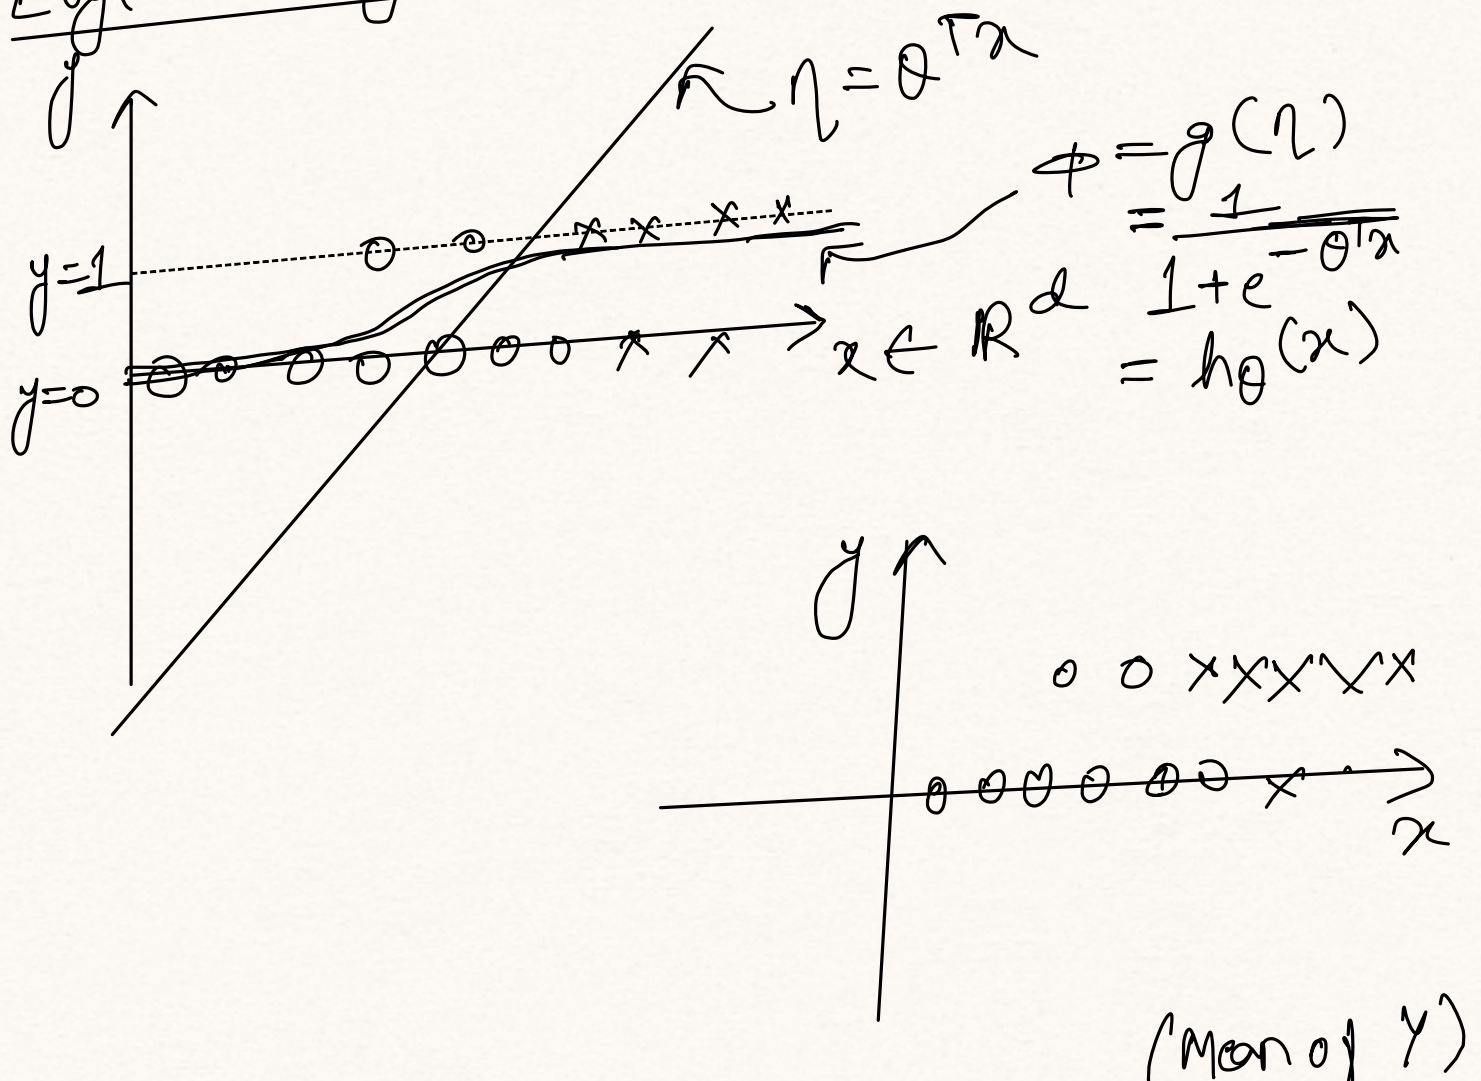 y
η = θᵀx
ϕ = g(η)
= 1 / (1 + e^(-θᵀx))
= hθ(x)
y=1
x ∈ ℝᵈ
y=0
y
x
(Mean of Y)